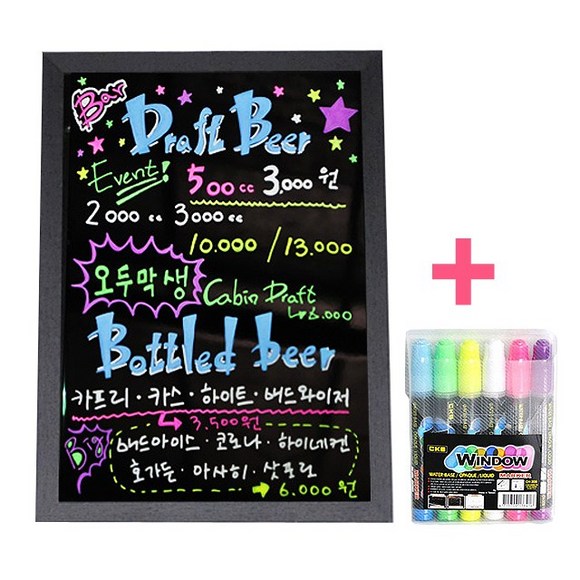 Bar
Draft Beer
Event! 500cc 3,000원
2000cc 3000cc
10.000 / 13.000
오두막 생
Cabin Draft
↳6.000
Bottled beer
카프리 · 카스 · 하이트 · 버드와이저
3,500원
Big
버드아이스 · 코로나 · 하이네켄
호가든 · 아사히 · 삿포로
6.000원
CKS
WINDOW
MARKER
WATER-BASE / OPAQUE / LIQUID